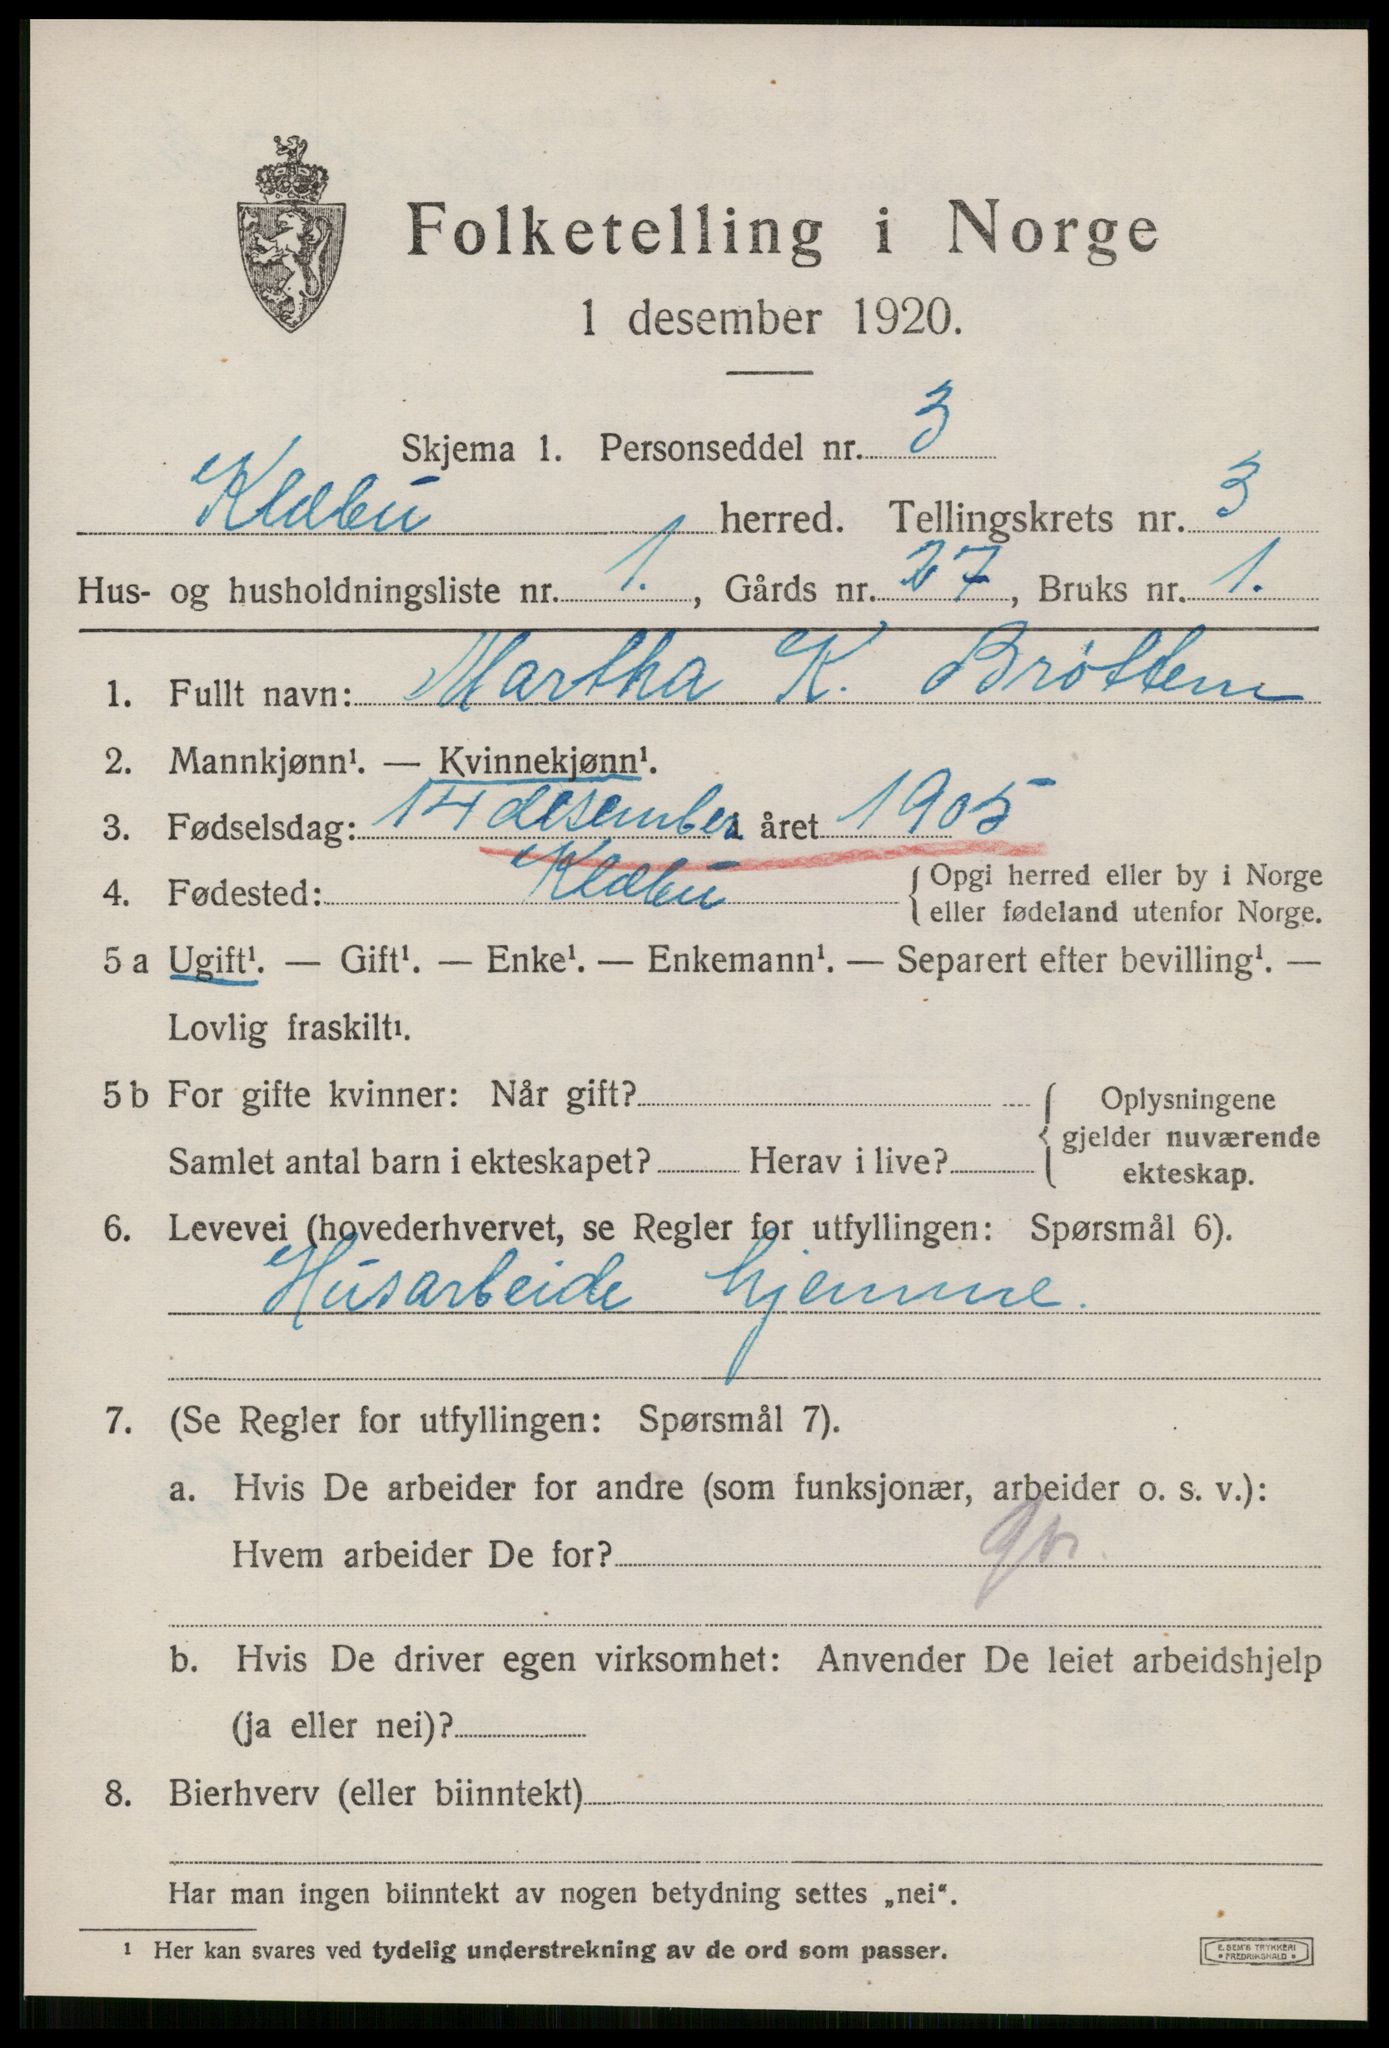 Folketelling i Norge
1 desember 1920.
Skjema 1. Personseddel nr. 3
Klæbu herred. Tellingskrets nr. 3
Hus- og husholdningsliste nr. 1. , Gårds nr. 27 , Bruks nr. 1.
1. Fullt navn: Martha K. Brøttem
2. Mannkjønn¹. — Kvinnekjønn¹.
3. Fødselsdag: 14 desember i året 1905
4. Fødested: Klæbu { Opgi herred eller by i Norge
eller fødeland utenfor Norge.
5 a Ugift¹. — Gift¹. — Enke¹. — Enkemann¹. — Separert efter bevilling¹. —
Lovlig fraskilt¹.
5 b For gifte kvinner: Når gift? { Oplysningene
gjelder nuværende
Samlet antal barn i ekteskapet? Herav i live? ekteskap.
6. Levevei (hovederhvervet, se Regler for utfyllingen: Spørsmål 6).
Husarbeide hjemme.
7. (Se Regler for utfyllingen: Spørsmål 7).
a. Hvis De arbeider for andre (som funksjonær, arbeider o. s. v.):
Hvem arbeider De for?
b. Hvis De driver egen virksomhet: Anvender De leiet arbeidshjelp
(ja eller nei)?
8. Bierhverv (eller biinntekt)
Har man ingen biinntekt av nogen betydning settes „nei“.
¹ Her kan svares ved tydelig understrekning av de ord som passer.
E. SEM'S TRYKKERI
• FREDRIKSHALD •